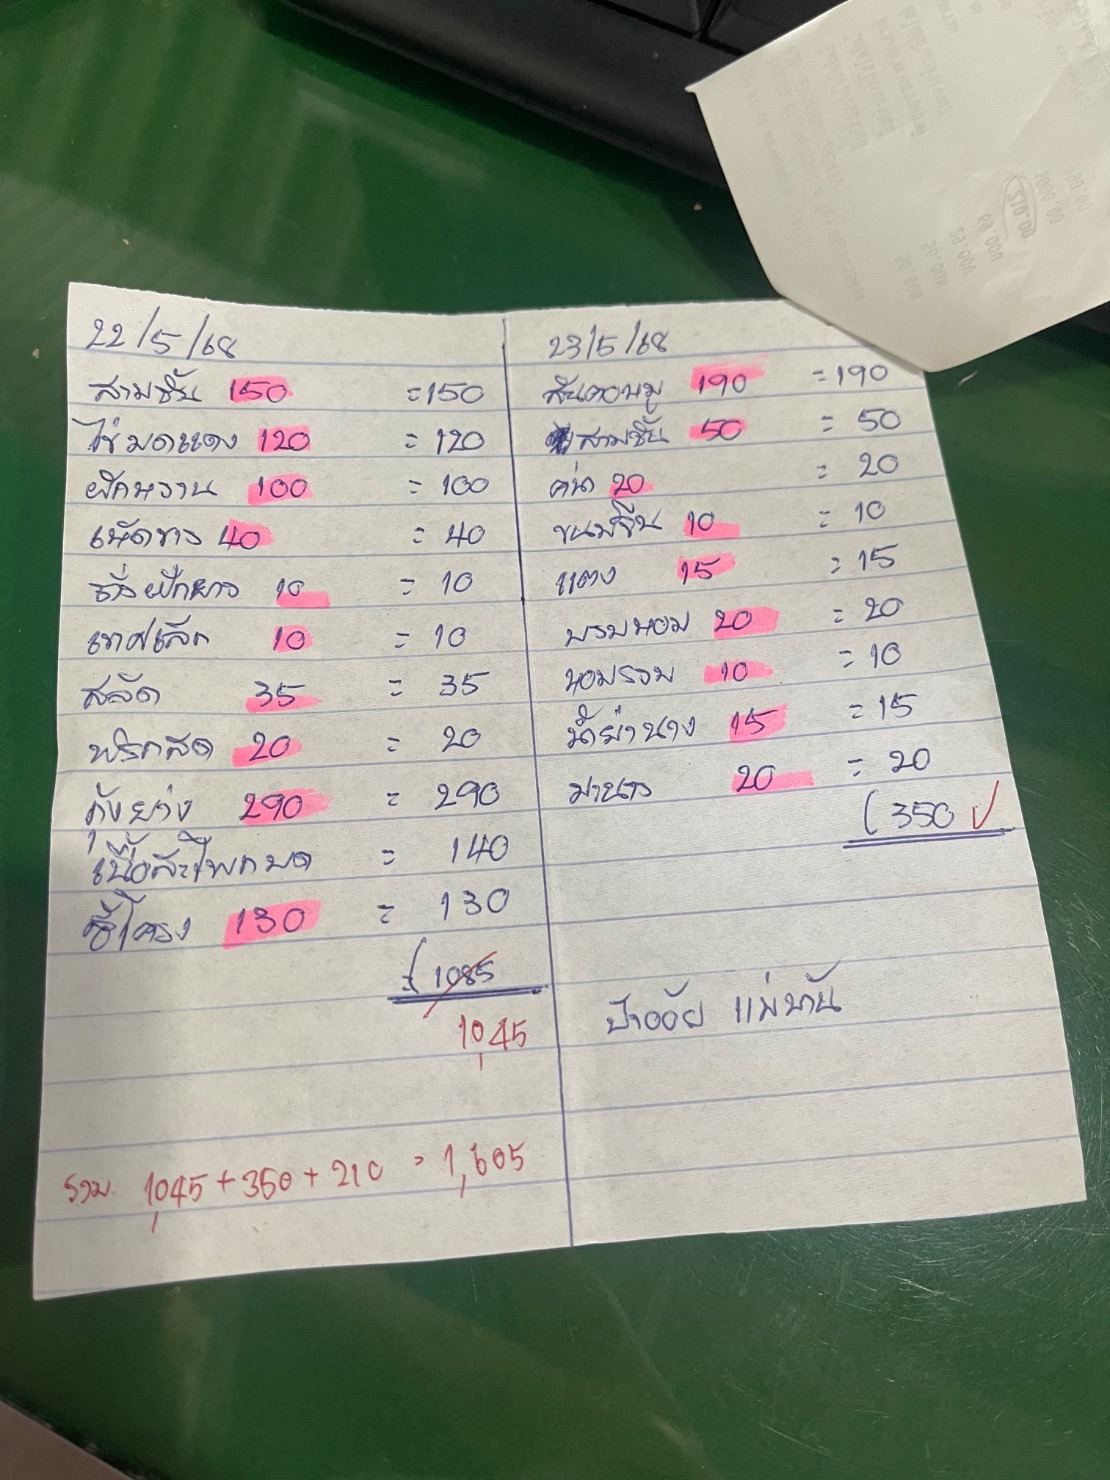 22/5/68
สามชั้น 150 =150
ไข่มดแดง 120 = 120
ผักหวาน 100 = 100
เห็ดขาว 40 = 40
ถั่วฝักยาว 10 = 10
เทศเล็ก 10 = 10
สลัด 35 = 35
พริกสด 20 = 20
กุ้งย่าง 290 = 290
เนื้อสะโพกบด = 140
ซี่โครง 130 = 130
1085
1045
รวม 1045 + 350 + 210 = 1,605
23/5/68
สันคอหมู 190 =190
สามชั้น 50 = 50
คน้า 20 = 20
ขนมจีน 10 = 10
แตง 15 = 15
20 = 20
หอมรวม 10 = 10
น้ำย่านาง 15 = 15
มานาว 20 = 20
(350 ✓
ป้าอ้อย แม่บ้าน
210.00